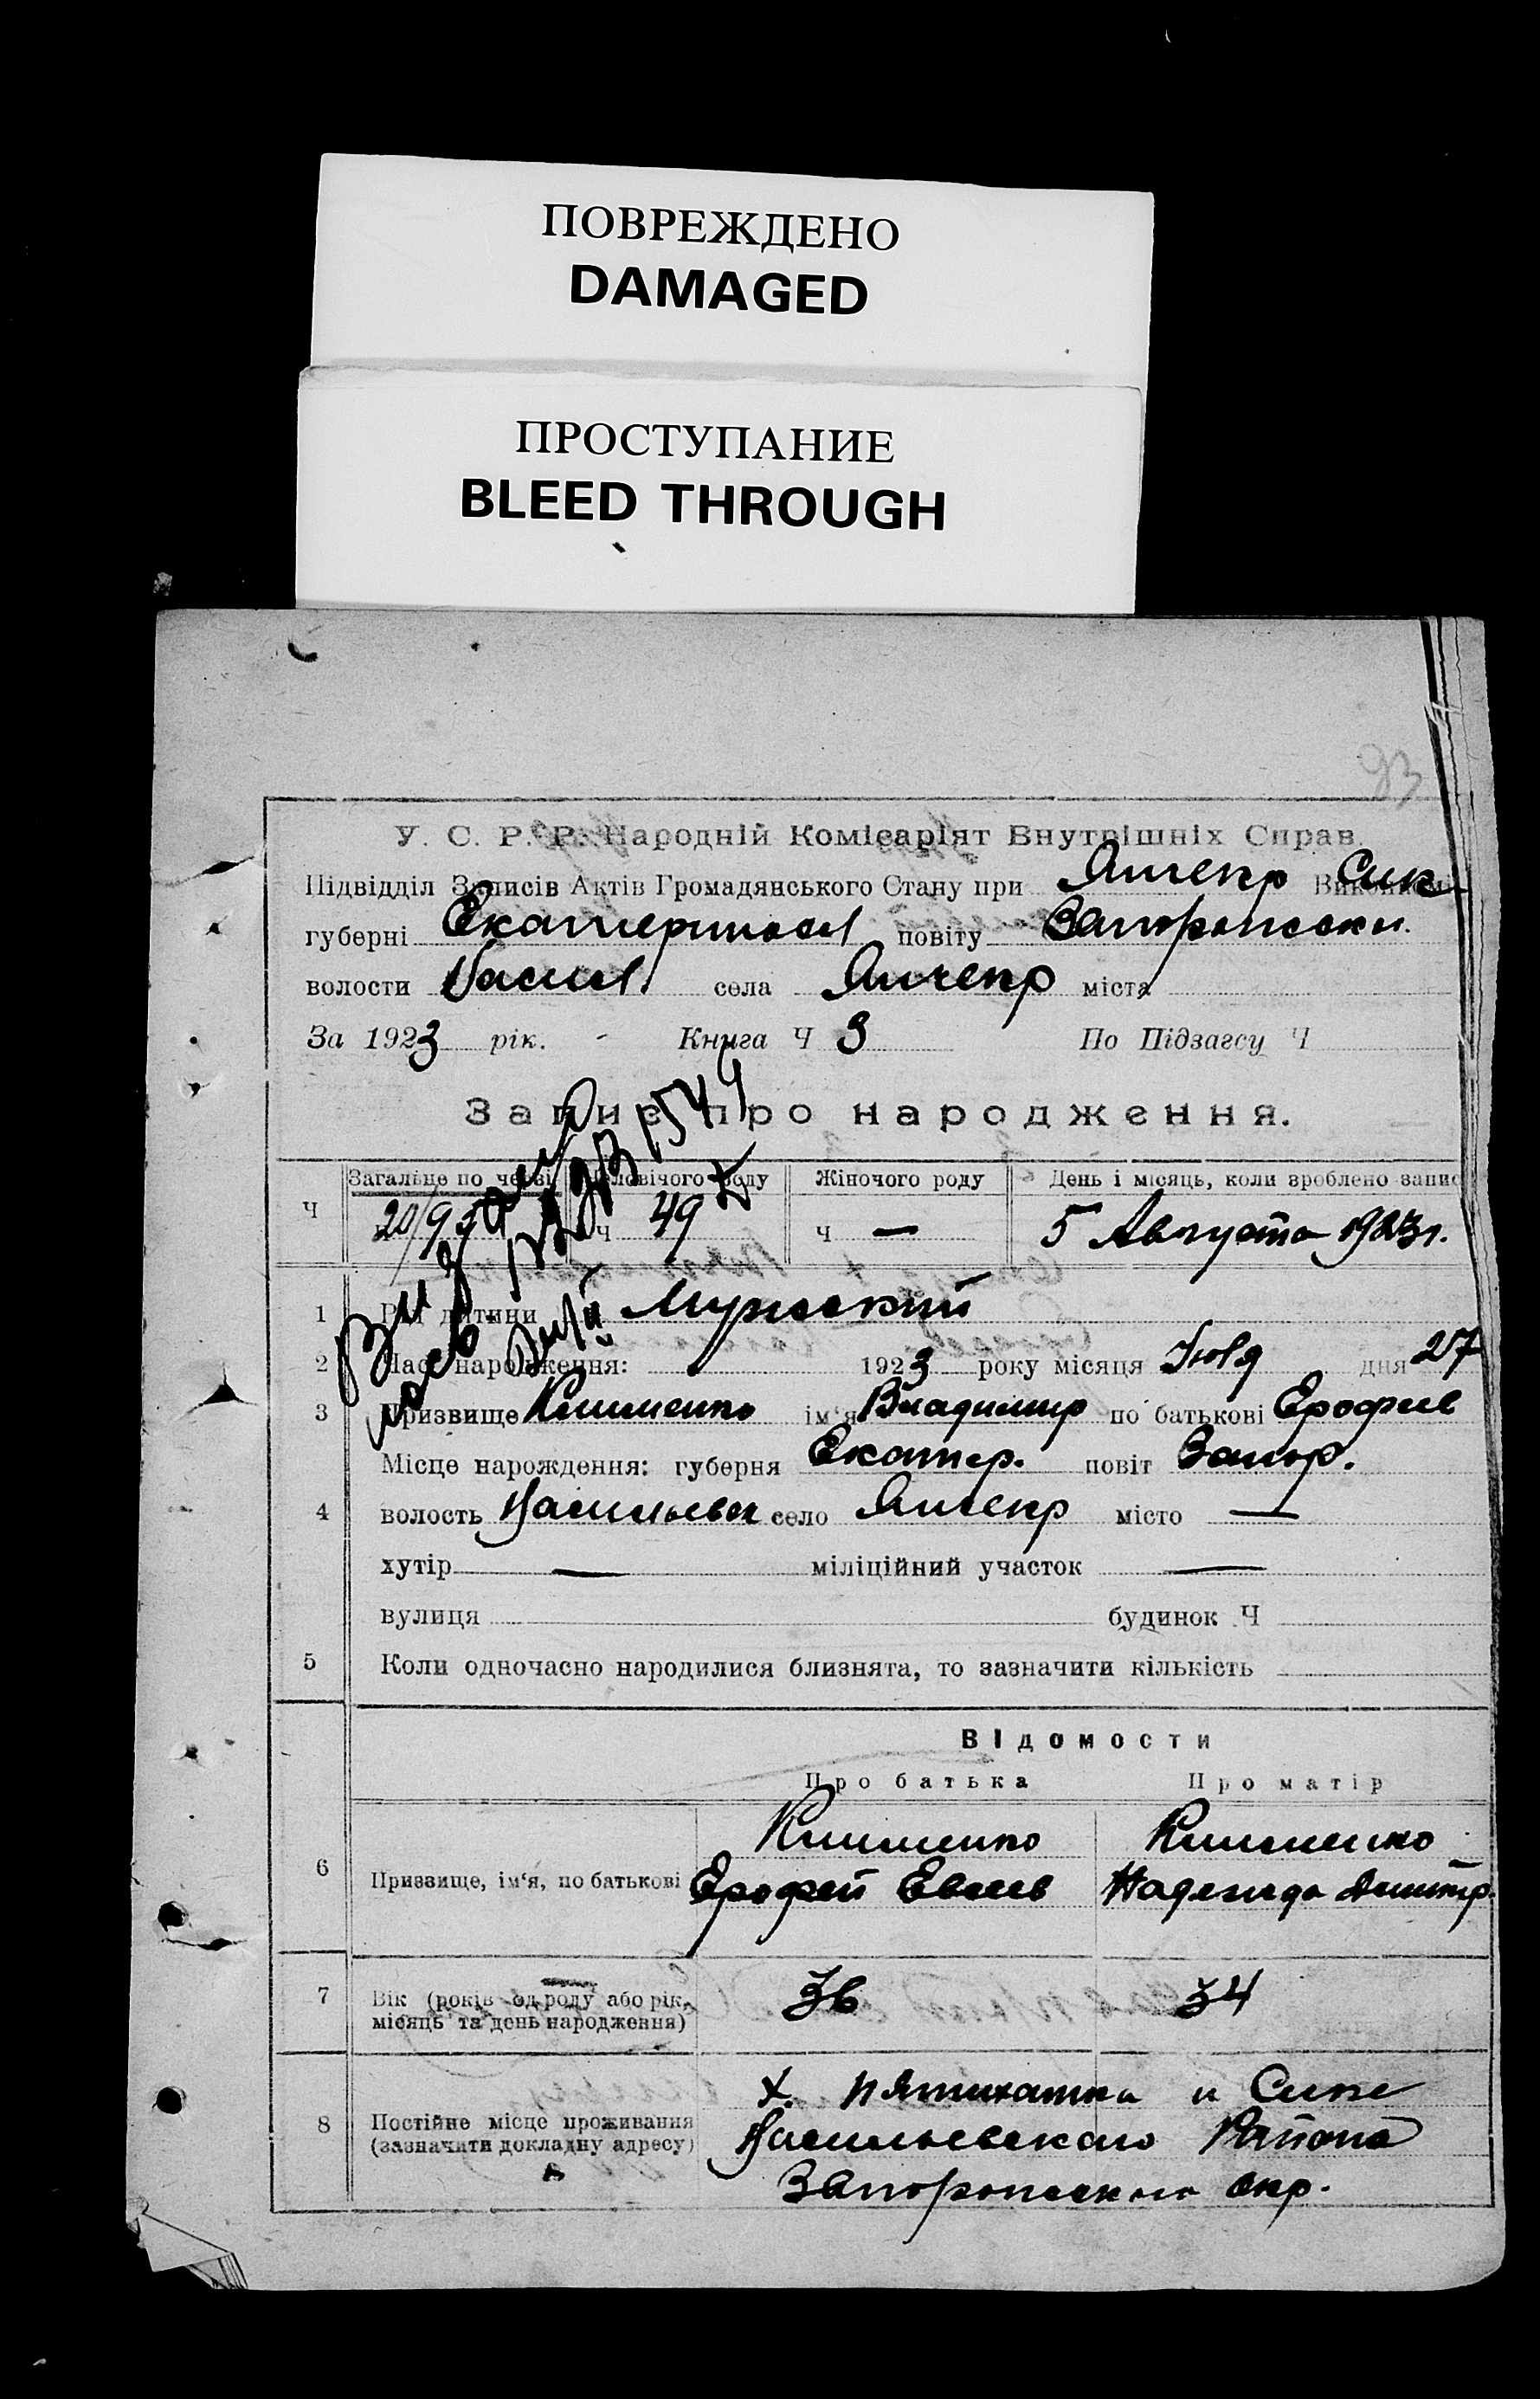 ПОВРЕЖДЕНО
DAMAGED
ПРОСТУПАНИЕ
BLEED THROUGH
93
У. С. Р. Р. Народній Комісаріят Внутрішніх Справ.
Підвідділ Записів Актів Громадянського Стану при Янчекр
губерні Екатериносл повіту Запорожски.
волости Васил. села Янчекр міста
За 1923 рік. Книга Ч 3 По Підзагсу Ч
Запис про народження.
Ч Загальне по черзі Чоловічого роду Жіночого роду День і місяць, коли зроблено запис
ч 49 ч — 5 Августа 1923 г.
1 Рід дитини Мужский
2 Час народження: 1923 року місяця Июля дня 27
3 Призвище Клименко ім‘я Владимир по батькові Ерофеев
Місце народження: губерня Екатер. повіт Запор.
4 волость Васильевск село Янчекр місто —
хутір — міліційний участок —
вулиця будинок Ч
5 Коли одночасно народилися близнята, то зазначити кількість
Відомости
Про батька Про матір
Клименко Клименко
6 Призвище, ім‘я, по батькові Ерофей Евсеев Надежда Димитр.
7 Вік (років од роду або рік, місяць та день народження) 36 34
х. Пятихатка
8 Постійне місце проживання (зазначити докладну адресу) Васильевскаго Района
Запорожскаго окр.